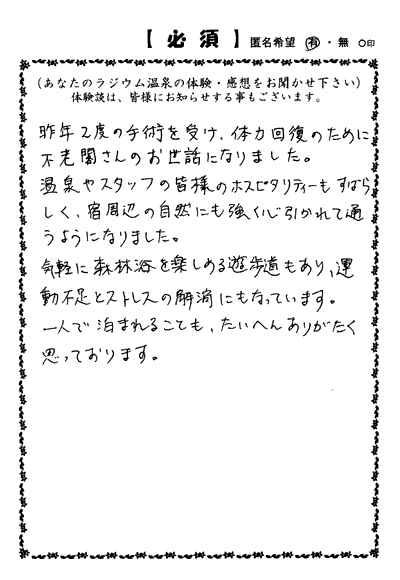 【 必 須 】 匿名希望 有 ・ 無 ○印
(あなたのラジウム温泉の体験・感想をお聞かせ下さい)
体験談は、皆様にお知らせする事もございます。
昨年2度の手術を受け、体力回復のために
不老閣さんのお世話になりました。
温泉やスタッフの皆様のホスピタリティーもすばら
しく、宿周辺の自然にも強く心引かれて通
うようになりました。
気軽に森林浴を楽しめる遊歩道もあり、運
動不足とストレスの解消にもなっています。
一人で泊まれることも、たいへんありがたく
思っております。